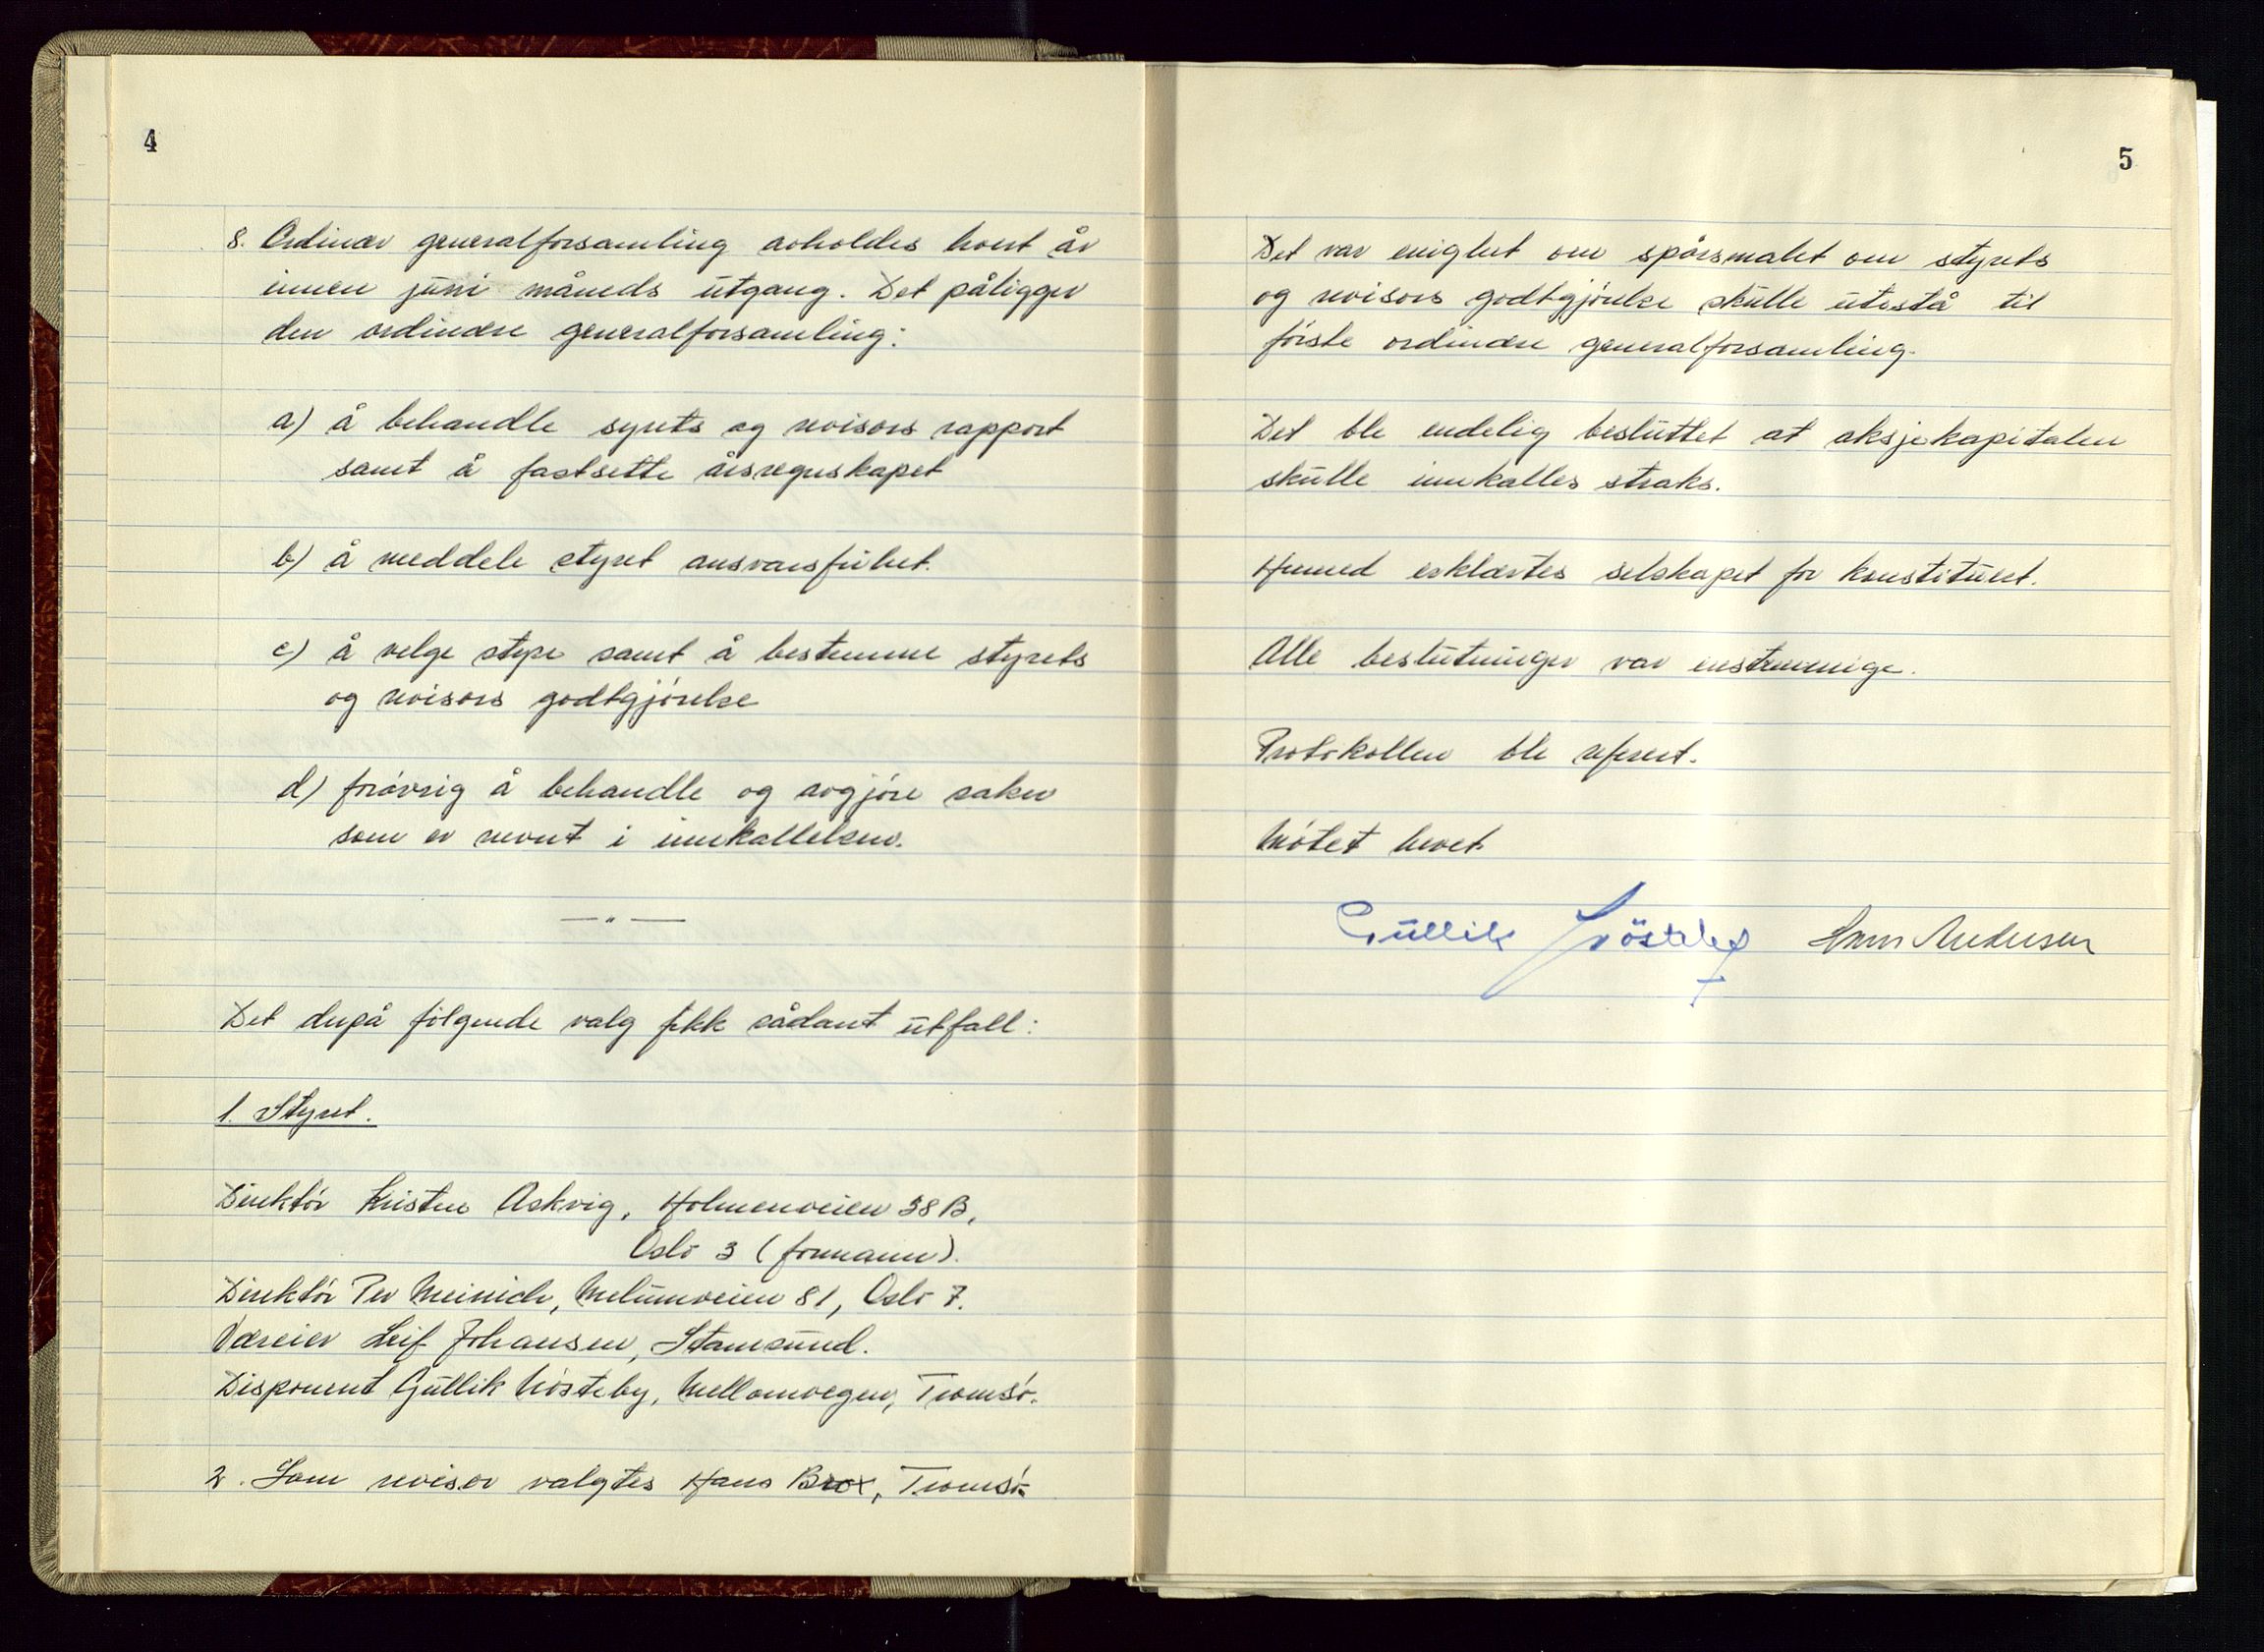 4
8. Ordinær generalforsamling avholdes hvert år
innen juni måneds utgang. Det påligger
den ordinære generalforsamling:
a) å behandle syrets og revisors rapport
samt å fastsette årsregnskapet
b) å meddele styret ansvarsfrihet.
c) å velge styre samt å bestemme styrets
og revisors godtgjørelse
d) forøvrig å behandle og avgjøre saker
som er nevnt i innkallelsen.
— " —
Det derpå følgende valg fikk sådant utfall:
1. Styret.
Direktør Kristen Askvig, Holmenveien 38 B,
Oslo 3 (formann).
Direktør Per Meinich, Melumveien 81, Oslo 7.
Væreier Leif Johansen, Stamsund.
Disponent Gullik Møsteby, Mellomvegen, Tromsø.
2. Som revisor valgtes Hans Brox, Tromsø.
5
Det var enighet om spørsmålet om styrets
og revisors godtgjørelse skulle utestå til
første ordinære generalforsamling.
Det ble endelig besluttet at aksjekapitalen
skulle innkalles straks.
Hermed erklærtes selskapet for konstituert.
Alle beslutninger var enstemmige.
Protokollen ble referert.
Møtet hevet.
Gullik Andersen